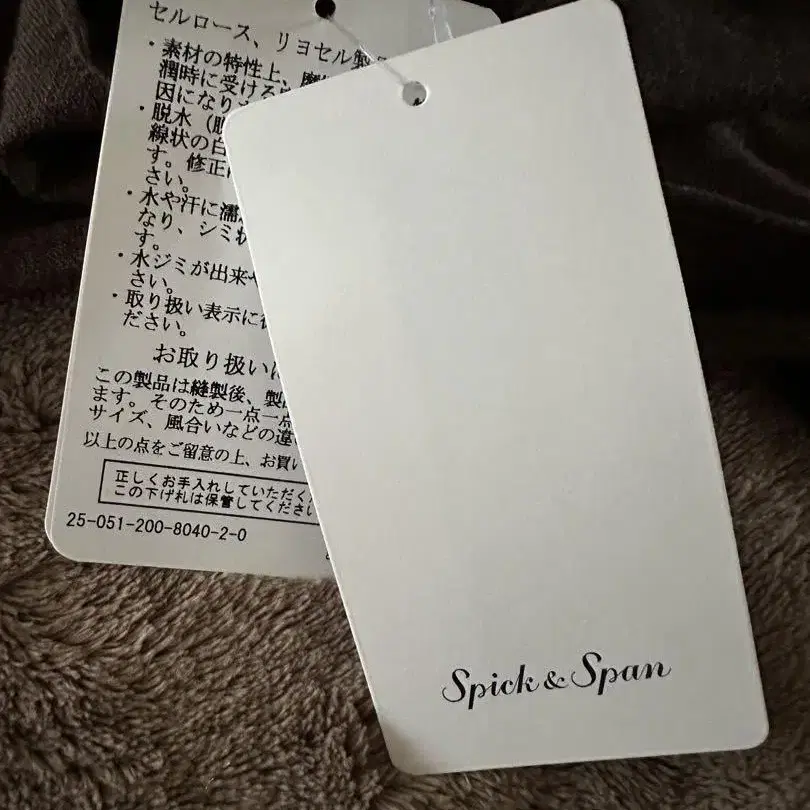 セルロース、リヨセル製
・素材の特性上、摩
潤時に受ける
因になりま
・脱水（脱
線状の白
す。修正
さい。
・水や汗に濡
なり、シミ状
す。
・水ジミが出来や
さい。
・取り扱い表示に
ださい。
お取り扱いに
この製品は縫製後、製
ます。そのため一点一点
サイズ、風合いなどの違
以上の点をご留意の上、お買い
正しくお手入れしていただく
この下げ札は保管してください
25-051-200-8040-2-0
Spick & Span